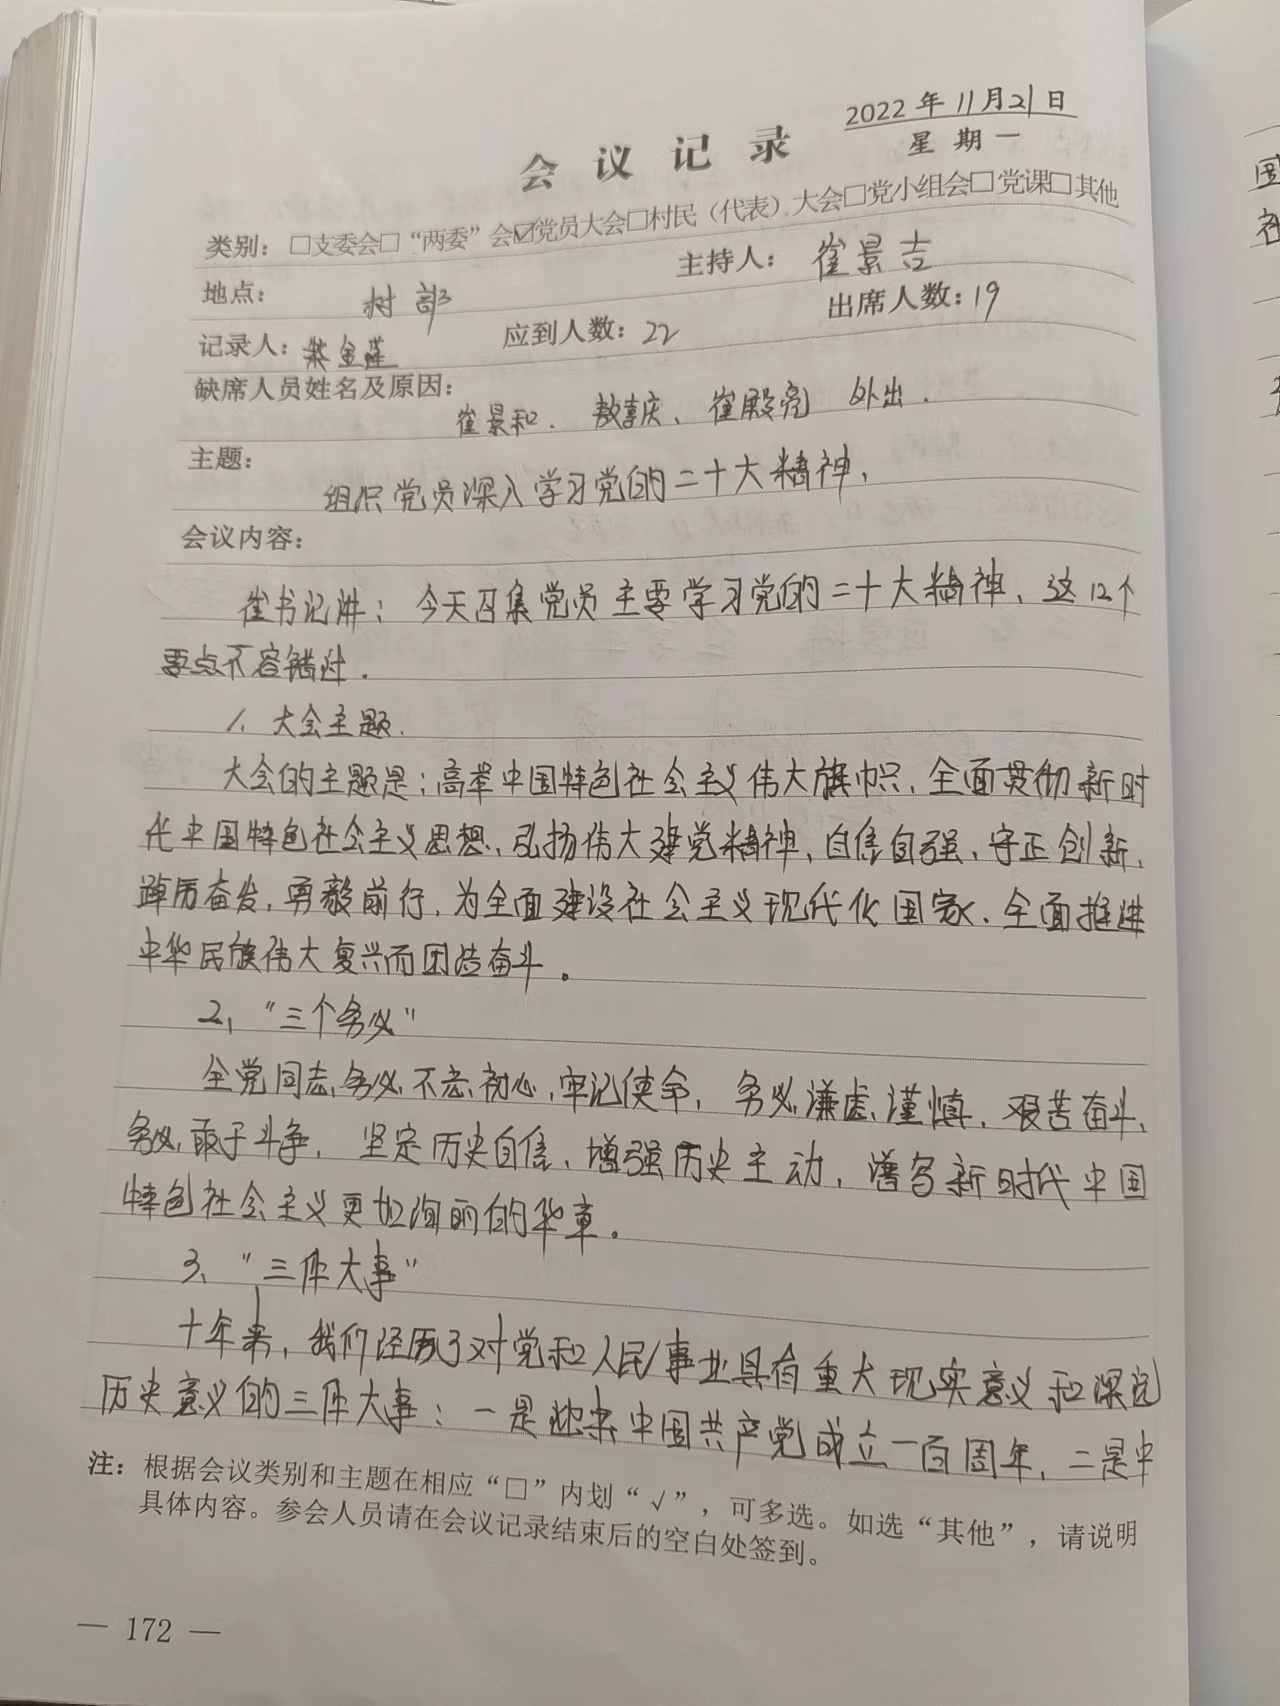 2022年11月21日
会议记录
星期一
类别：□支委会□“两委”会☑党员大会□村民（代表）大会□党小组会□党课□其他
地点：村部 主持人：崔景吉
记录人： 应到人数：22 出席人数：19
缺席人员姓名及原因：
崔景和、敖喜庆、崔殿亮 外出.
主题：
组织党员深入学习党的二十大精神，
会议内容：
崔书记讲：今天召集党员主要学习党的二十大精神、这12个
要点不容错过.
1、大会主题.
大会的主题是：高举中国特色社会主义伟大旗帜，全面贯彻新时
代中国特色社会主义思想，弘扬伟大建党精神，自信自强，守正创新，
踔厉奋发，勇毅前行，为全面建设社会主义现代化国家、全面推进
中华民族伟大复兴而团结奋斗。
2、“三个务必”
全党同志务必不忘初心，牢记使命，务必谦虚、谨慎、艰苦奋斗、
务必敢于斗争，坚定历史自信、增强历史主动，谱写新时代中国
特色社会主义更加绚丽的华章。
3、“三件大事”
十年来，我们经历了对党和人民事业具有重大现实意义和深远
历史意义的三件大事：一是迎来中国共产党成立一百周年，二是中
注：根据会议类别和主题在相应“□”内划“√”，可多选。如选“其他”，请说明
具体内容。参会人员请在会议记录结束后的空白处签到。
— 172 —
国
社